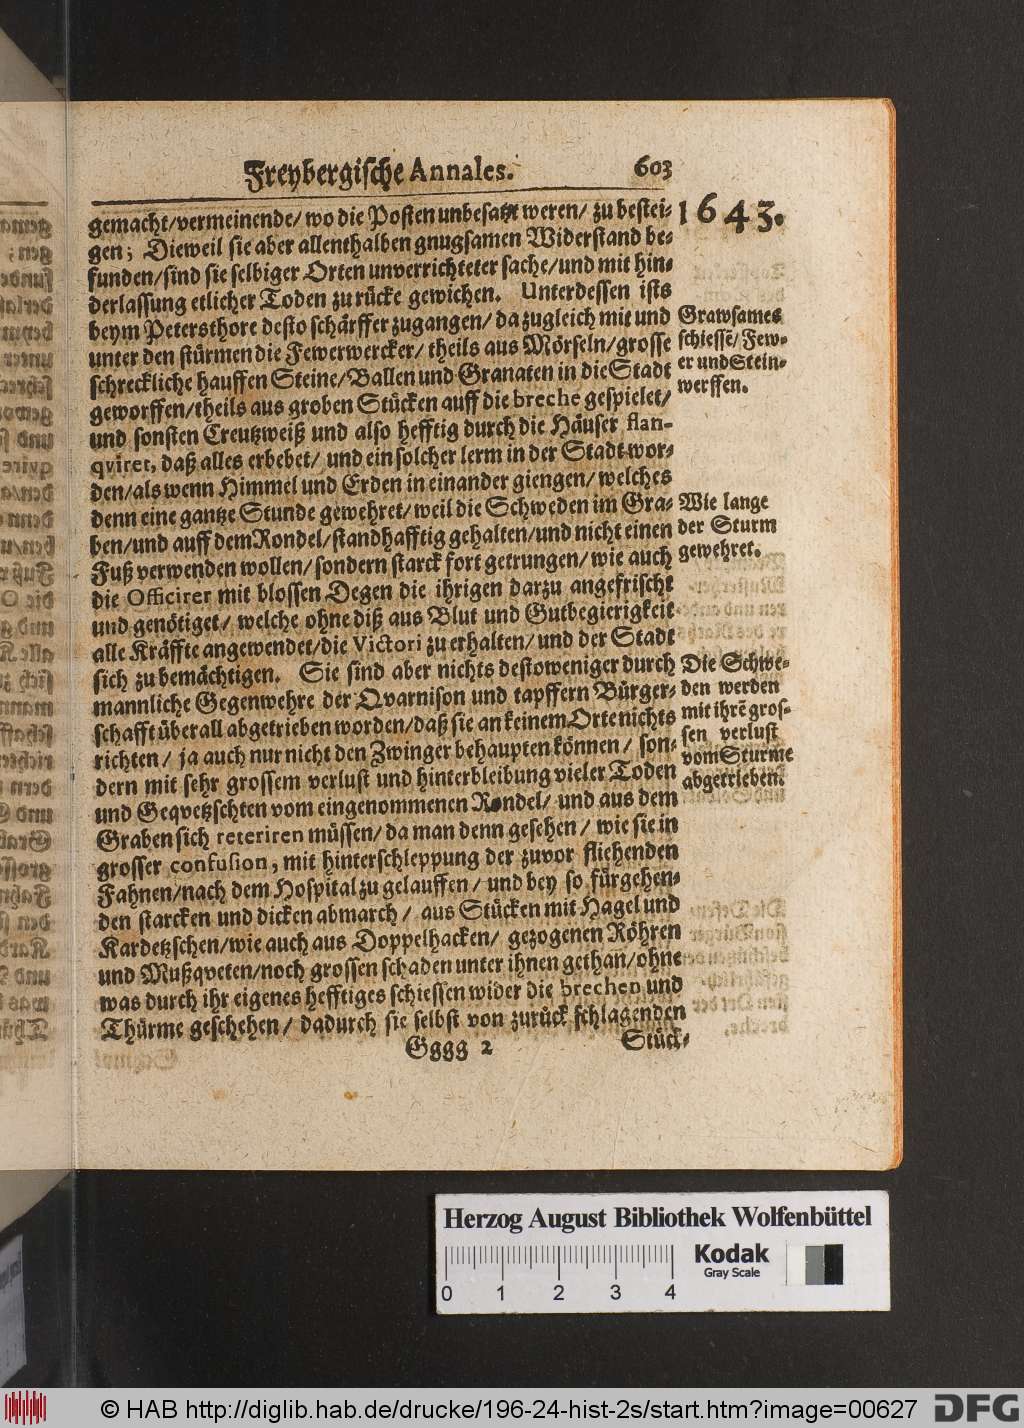 Freybergische Annales. 603
1643.
gemacht/vermeinende/ wo die Posten unbesatzt weren/ zu bestei-
gen; Dieweil sie aber allenthalben gnugsamen Widerstand be-
funden/sind sie selbiger Orten unverrichteter sache/und mit hin-
derlassung etlicher Toden zu rücke gewichen. Unterdessen ists
beym Petersthore desto schärffer zugangen/ da zugleich mit und
unter den stürmen die Fewerwercker/ theils aus Mörseln/grosse
schreckliche hauffen Steine/Ballen und Granaten in die Stadt
geworffen/theils aus groben Stücken auff die breche gespielet/
und sonsten Creutzweiß und also hefftig durch die Häuser flan-
qviret, daß alles erbebet/ und ein solcher lerm in der Stadt wor-
den/als wenn Himmel und Erden in einander giengen/ welches
denn eine gantze Stunde gewehret/ weil die Schweden im Gra-
ben/und auff dem Rondel/standhafftig gehalten/und nicht einen
Fuß verwenden wollen/ sondern starck fort getrungen/ wie auch
die Officirer mit blossen Degen die ihrigen darzu angefrischt
und genötiget/ welche ohne diß aus Blut und Gutbegierigkeit
alle Kräffte angewendet/die Victori zu erhalten/ und der Stadt
sich zu bemächtigen. Sie sind aber nichts destoweniger durch
mannliche Gegenwehre der Qvarnison und tapffern Bürger-
schafft überall abgetrieben worden/daß sie an keinem Orte nichts
richten/ ja auch nur nicht den Zwinger behaupten können/ son-
dern mit sehr grossem verlust und hinterbleibung vieler Toden
und Geqvetzschten vom eingenommenen Rondel/ und aus dem
Graben sich reteriren müssen/ da man denn gesehen/ wie sie in
grosser confusion, mit hinterschleppung der zuvor fliehenden
Fahnen/nach dem Hospital zu gelauffen/ und bey so fürgehen-
den starcken und dicken abmarch/ aus Stücken mit Hagel und
Kardetzschen/wie auch aus Doppelhacken/ gezogenen Röhren
und Mußqveten/noch grossen schaden unter ihnen gethan/ohne
was durch ihr eigenes hefftiges schiessen wider die brechen und
Thürme geschehen/ dadurch sie selbst von zurück schlagenden
Gggg 2 Stück-
Grawsames
schiessē/ Few-
er und Stein-
werffen.
Wie lange
der Sturm
gewehret.
Die Schwe-
den werden
mit ihrē gros-
sen verlust
vom Sturme
abgetrieben.
Herzog August Bibliothek Wolfenbüttel
Kodak
Gray Scale
0 1 2 3 4
© HAB http://diglib.hab.de/drucke/196-24-hist-2s/start.htm?image=00627
DFG